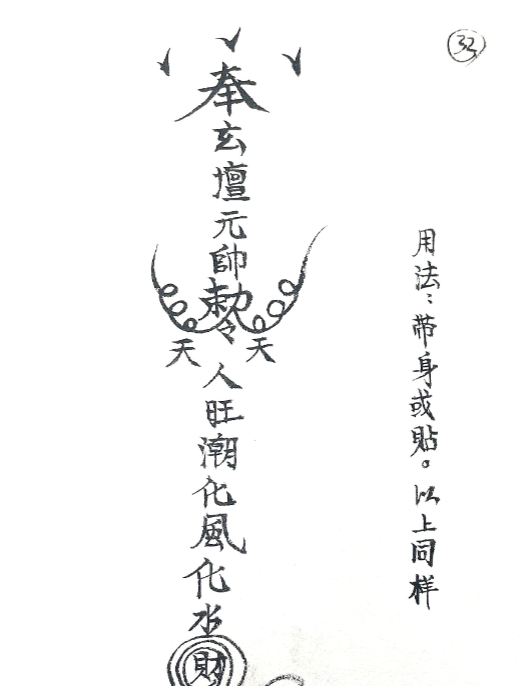 32
奉玄壇元帥勅令
天 天
人旺潮化風化水
財
用法：帶身或貼。以上同样